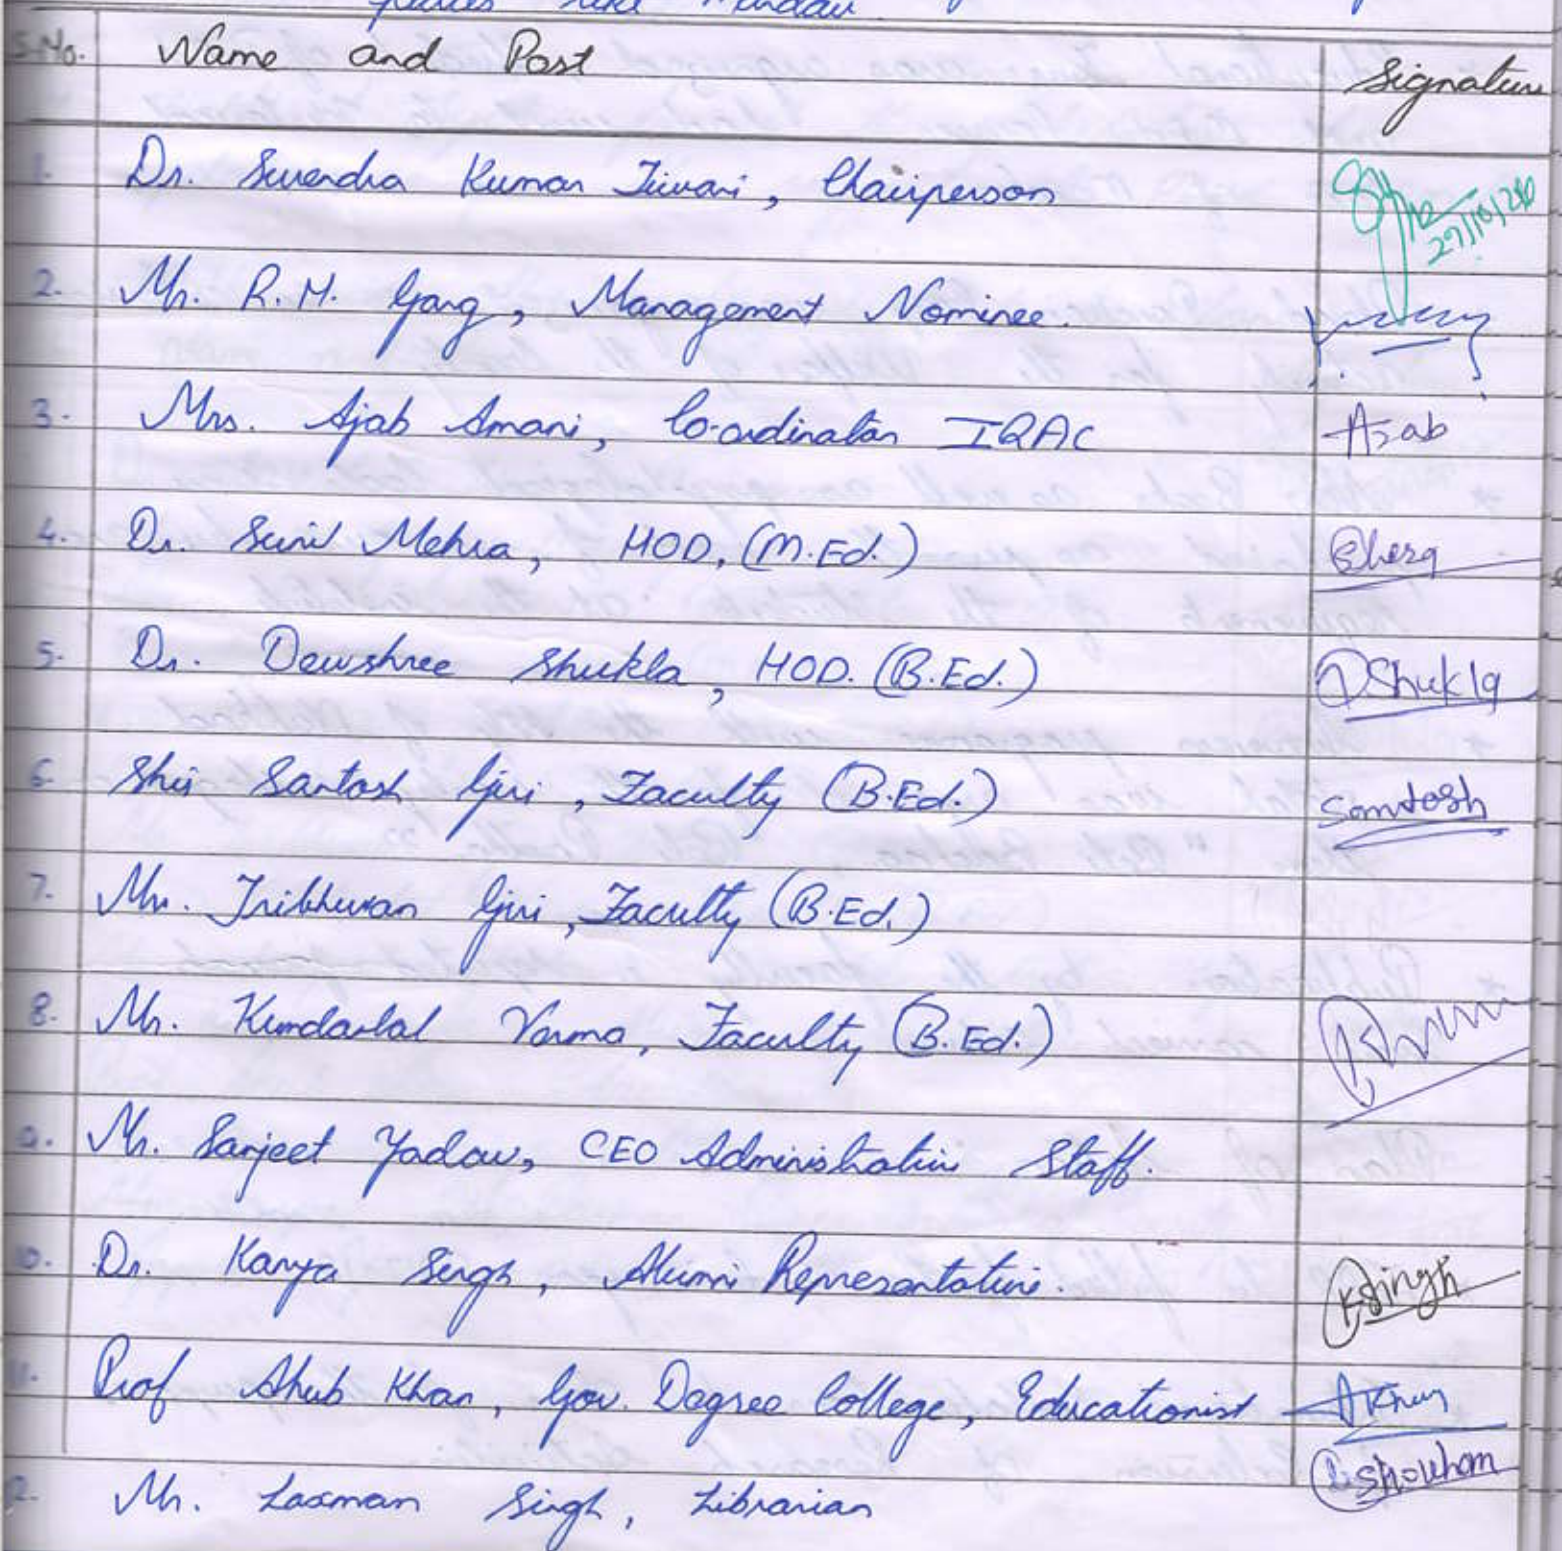 places like Mandav
S.No. Name and Post Signature
1. Dr. Surendra Kumar Tiwari, Chairperson
27/10/20
2. Mr. R.M. Garg, Management Nominee.
3. Mrs. Ajab Amani, Co-ordinator IQAC Ajab
4. Dr. Sunil Mehra, HOD, (M.Ed.)
5. Dr. Dewshree Shukla, HOD. (B.Ed.) DShukla
6. Shri Santosh Giri, Faculty (B.Ed.) Santosh
7. Mr. Tribhuwan Giri, Faculty (B.Ed.)
8. Mr. Kundanlal Varma, Faculty (B.Ed.)
9. Mr. Sanjeet Yadav, CEO Administrative Staff.
10. Dr. Kanya Singh, Alumni Representative. KSingh
11. Prof Ahub Khan, Gov. Degree College, Educationist AKhan
12. Mr. Laxman Singh, Librarian